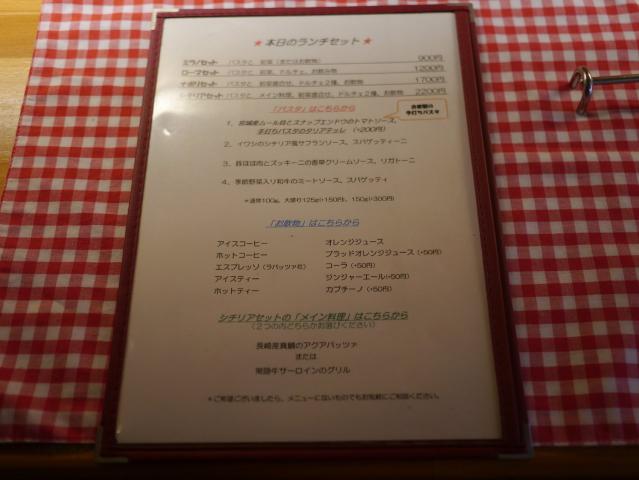 ★ 本日のランチセット ★
ミラノセット パスタと、前菜（またはお飲物） 900円
ローマセット パスタと、前菜、ドルチェ、お飲み物 1200円
ナポリセット パスタと、前菜盛合せ、ドルチェ２種、お飲物 1700円
シチリアセット パスタと、メイン料理、前菜盛合せ、ドルチェ２種、お飲物 2200円
「パスタ」はこちらから
お総菜の
手打ちパスタ
1、宮城産ムール貝とスナップエンドウのトマトソース、
手打ちパスタのタリアテッレ （+200円）
2、イワシのシチリア風サフランソース、スパゲッティーニ
3、豚ほほ肉とズッキーニの香草クリームソース、リガトーニ
4、季節野菜入り和牛のミートソース、スパゲッティ
＊通常100g、大盛り125g(+150円)、150g(+300円)
「お飲物」はこちらから
アイスコーヒー オレンジジュース
ホットコーヒー ブラッドオレンジジュース（+50円）
エスプレッソ（ラバッツァ社） コーラ（+50円）
アイスティー ジンジャーエール(+50円）
ホットティー カプチーノ（+50円）
シチリアセットの「メイン料理」はこちらから
（２つの内どちらかお選びください）
長崎産真鯛のアクアパッツァ
または
常陸牛サーロインのグリル
＊ご希望ございましたら、メニューにないものでもお気軽にご相談ください。